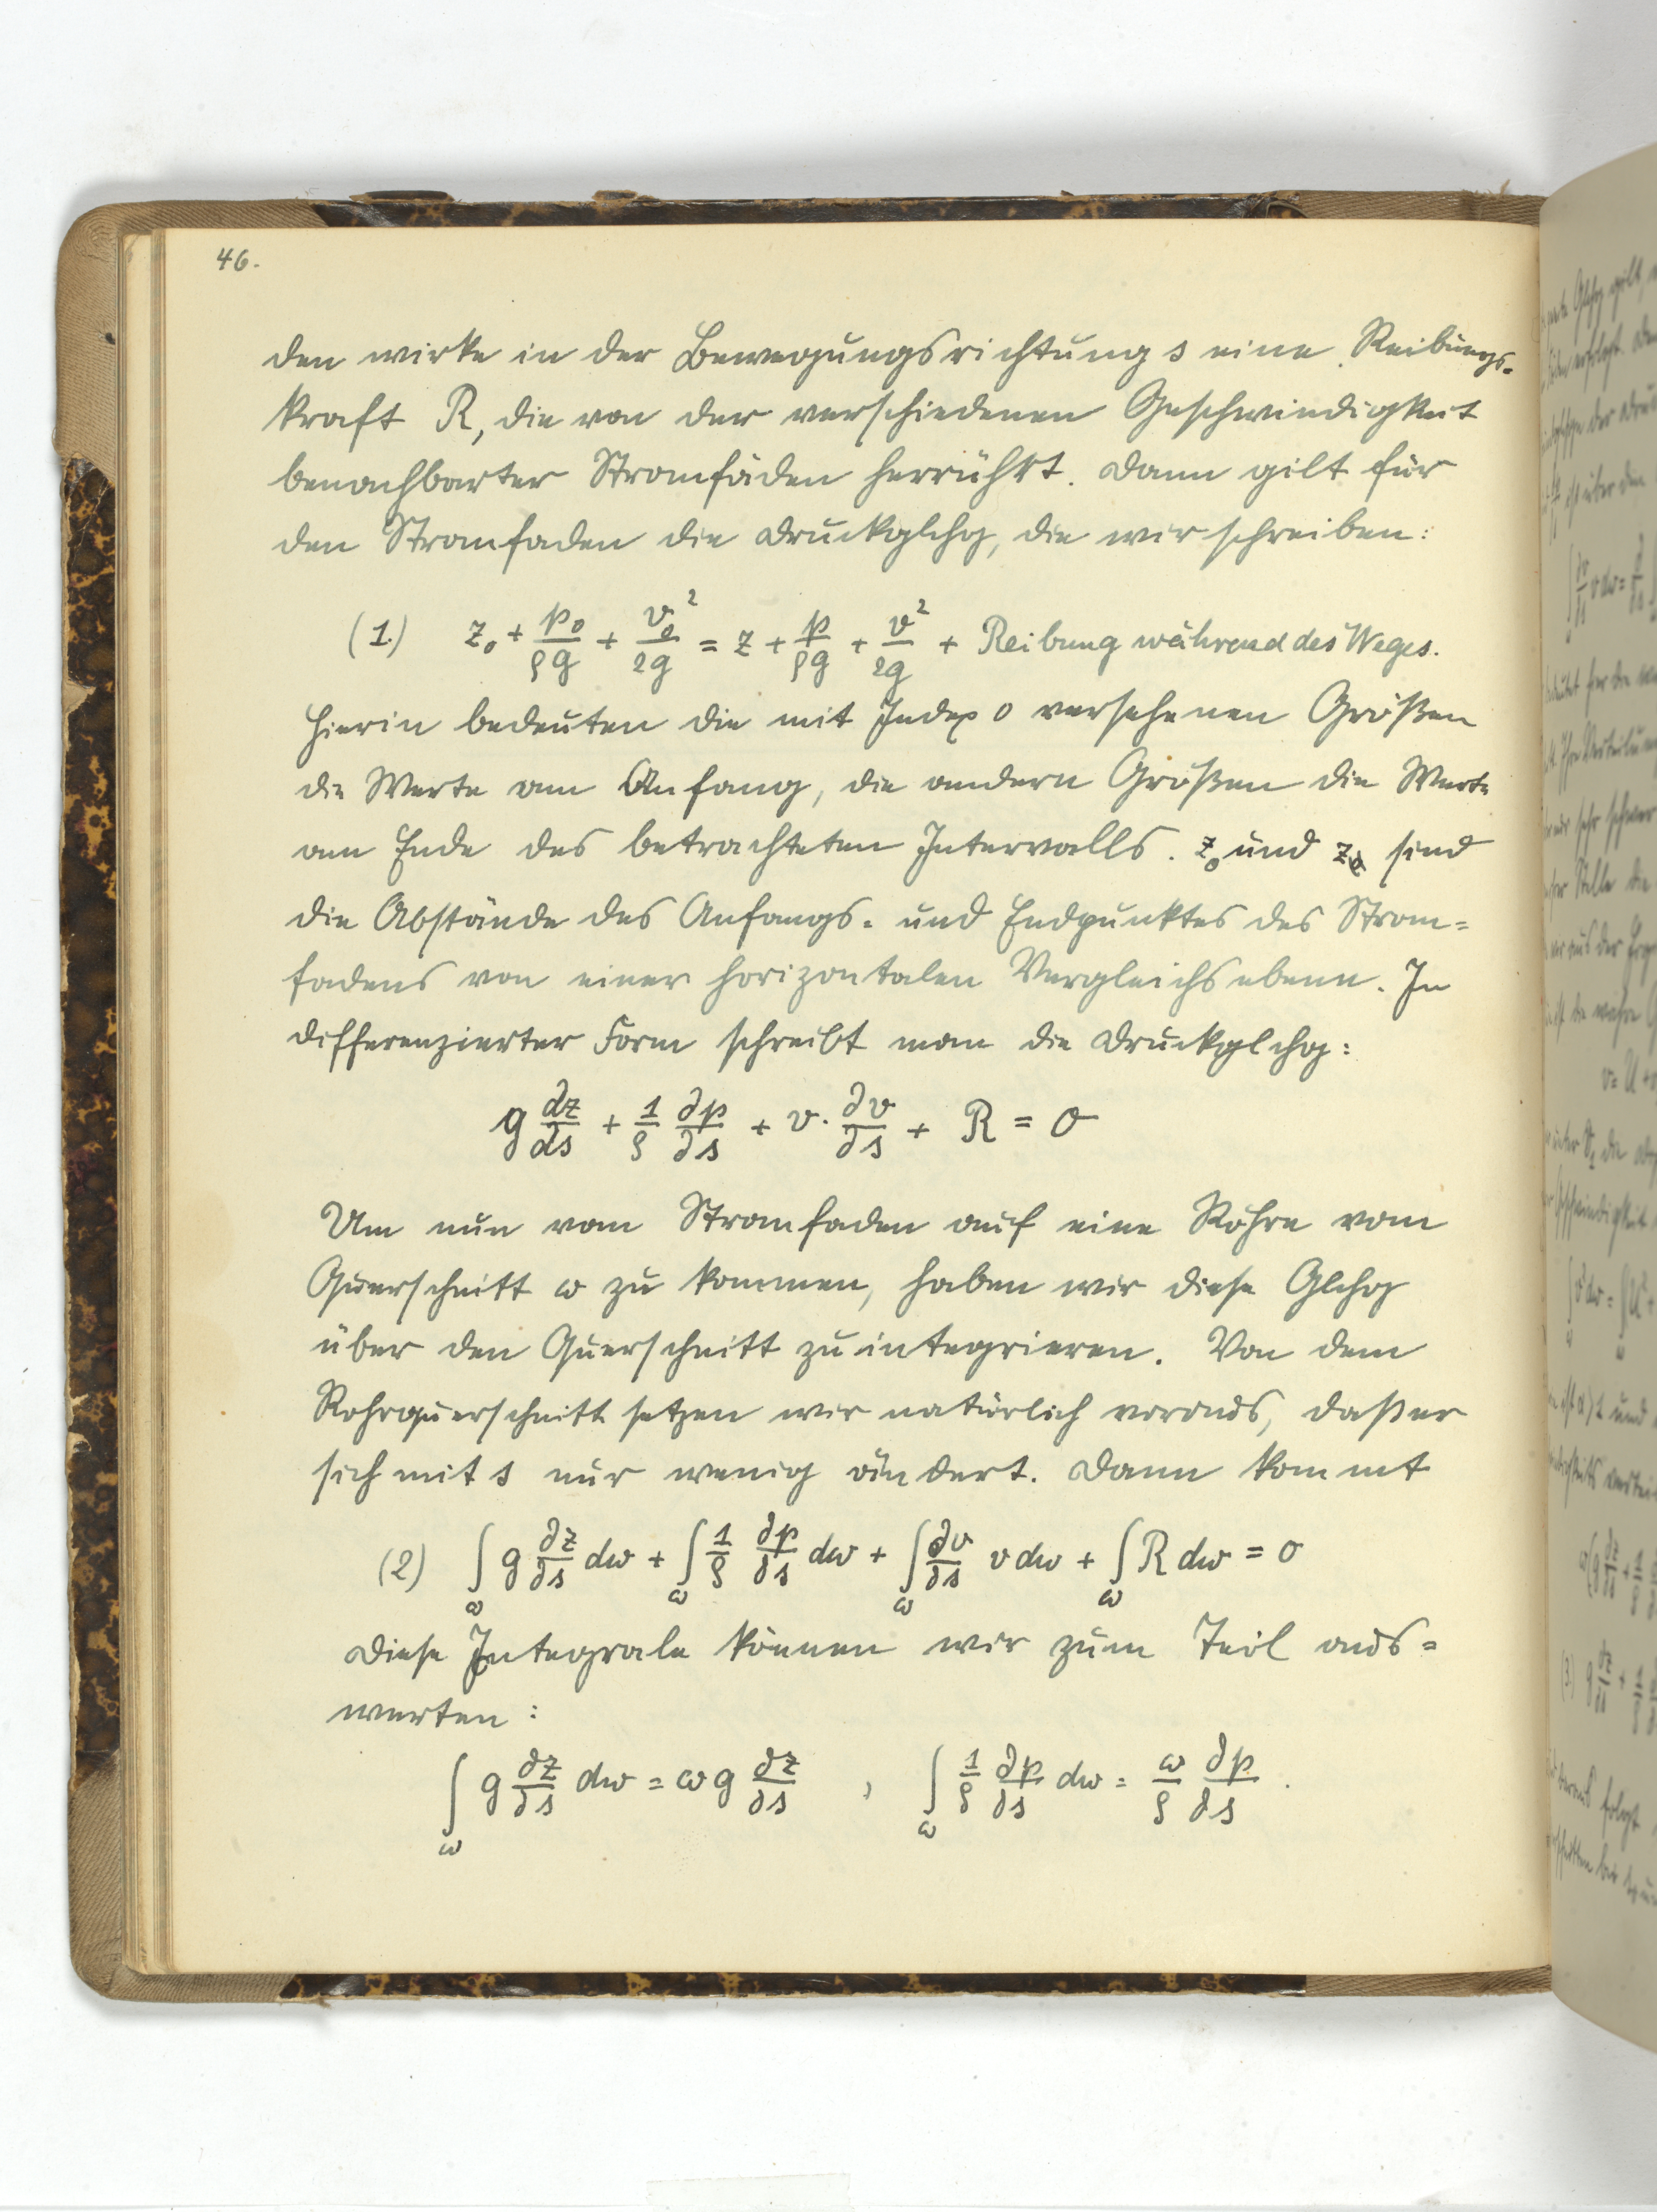 46.
den wirke in der Bewegungsrichtung s eine Reibungs-
kraft R, die von der verschiedenen Geschwindigkeit
benachbarter Stromfäden herrührt. Dann gilt für
den Stromfaden die Druckglchg, die wir schreiben:
(1.) z₀ + p₀/ρg + v₀²/2g = z + p/ρg + v²/2g + Reibung während des Weges.
Hierin bedeuten die mit Index 0 versehenen Größen
die Werte am Anfang, die andern Größen die Werte
am Ende des betrachteten Intervalls. z₀ und z sind
die Abstände des Anfangs- und Endpunktes des Strom=
fadens von einer horizontalen Vergleichsebene. In
differenzierter Form schreibt man die Druckglchg:
g dz/ds + 1/ρ ∂p/∂s + v · ∂v/∂s + R = 0
Um nun vom Stromfaden auf eine Röhre vom
Querschnitt ω zu kommen, haben wir diese Glchg
über den Querschnitt zu integrieren. Von dem
Rohrquerschnitt setzen wir natürlich voraus, daß er
sich mit s nur wenig ändert. Dann kommt
(2) ∫ω g ∂z/∂s dω + ∫ω 1/ρ ∂p/∂s dω + ∫ω ∂v/∂s v dω + ∫ω R dω = 0
Diese Integrale können wir zum Teil aus=
werten:
∫ω g ∂z/∂s dω = ω g ∂z/∂s , ∫ω 1/ρ ∂p/∂s dω = ω/ρ ∂p/∂s .